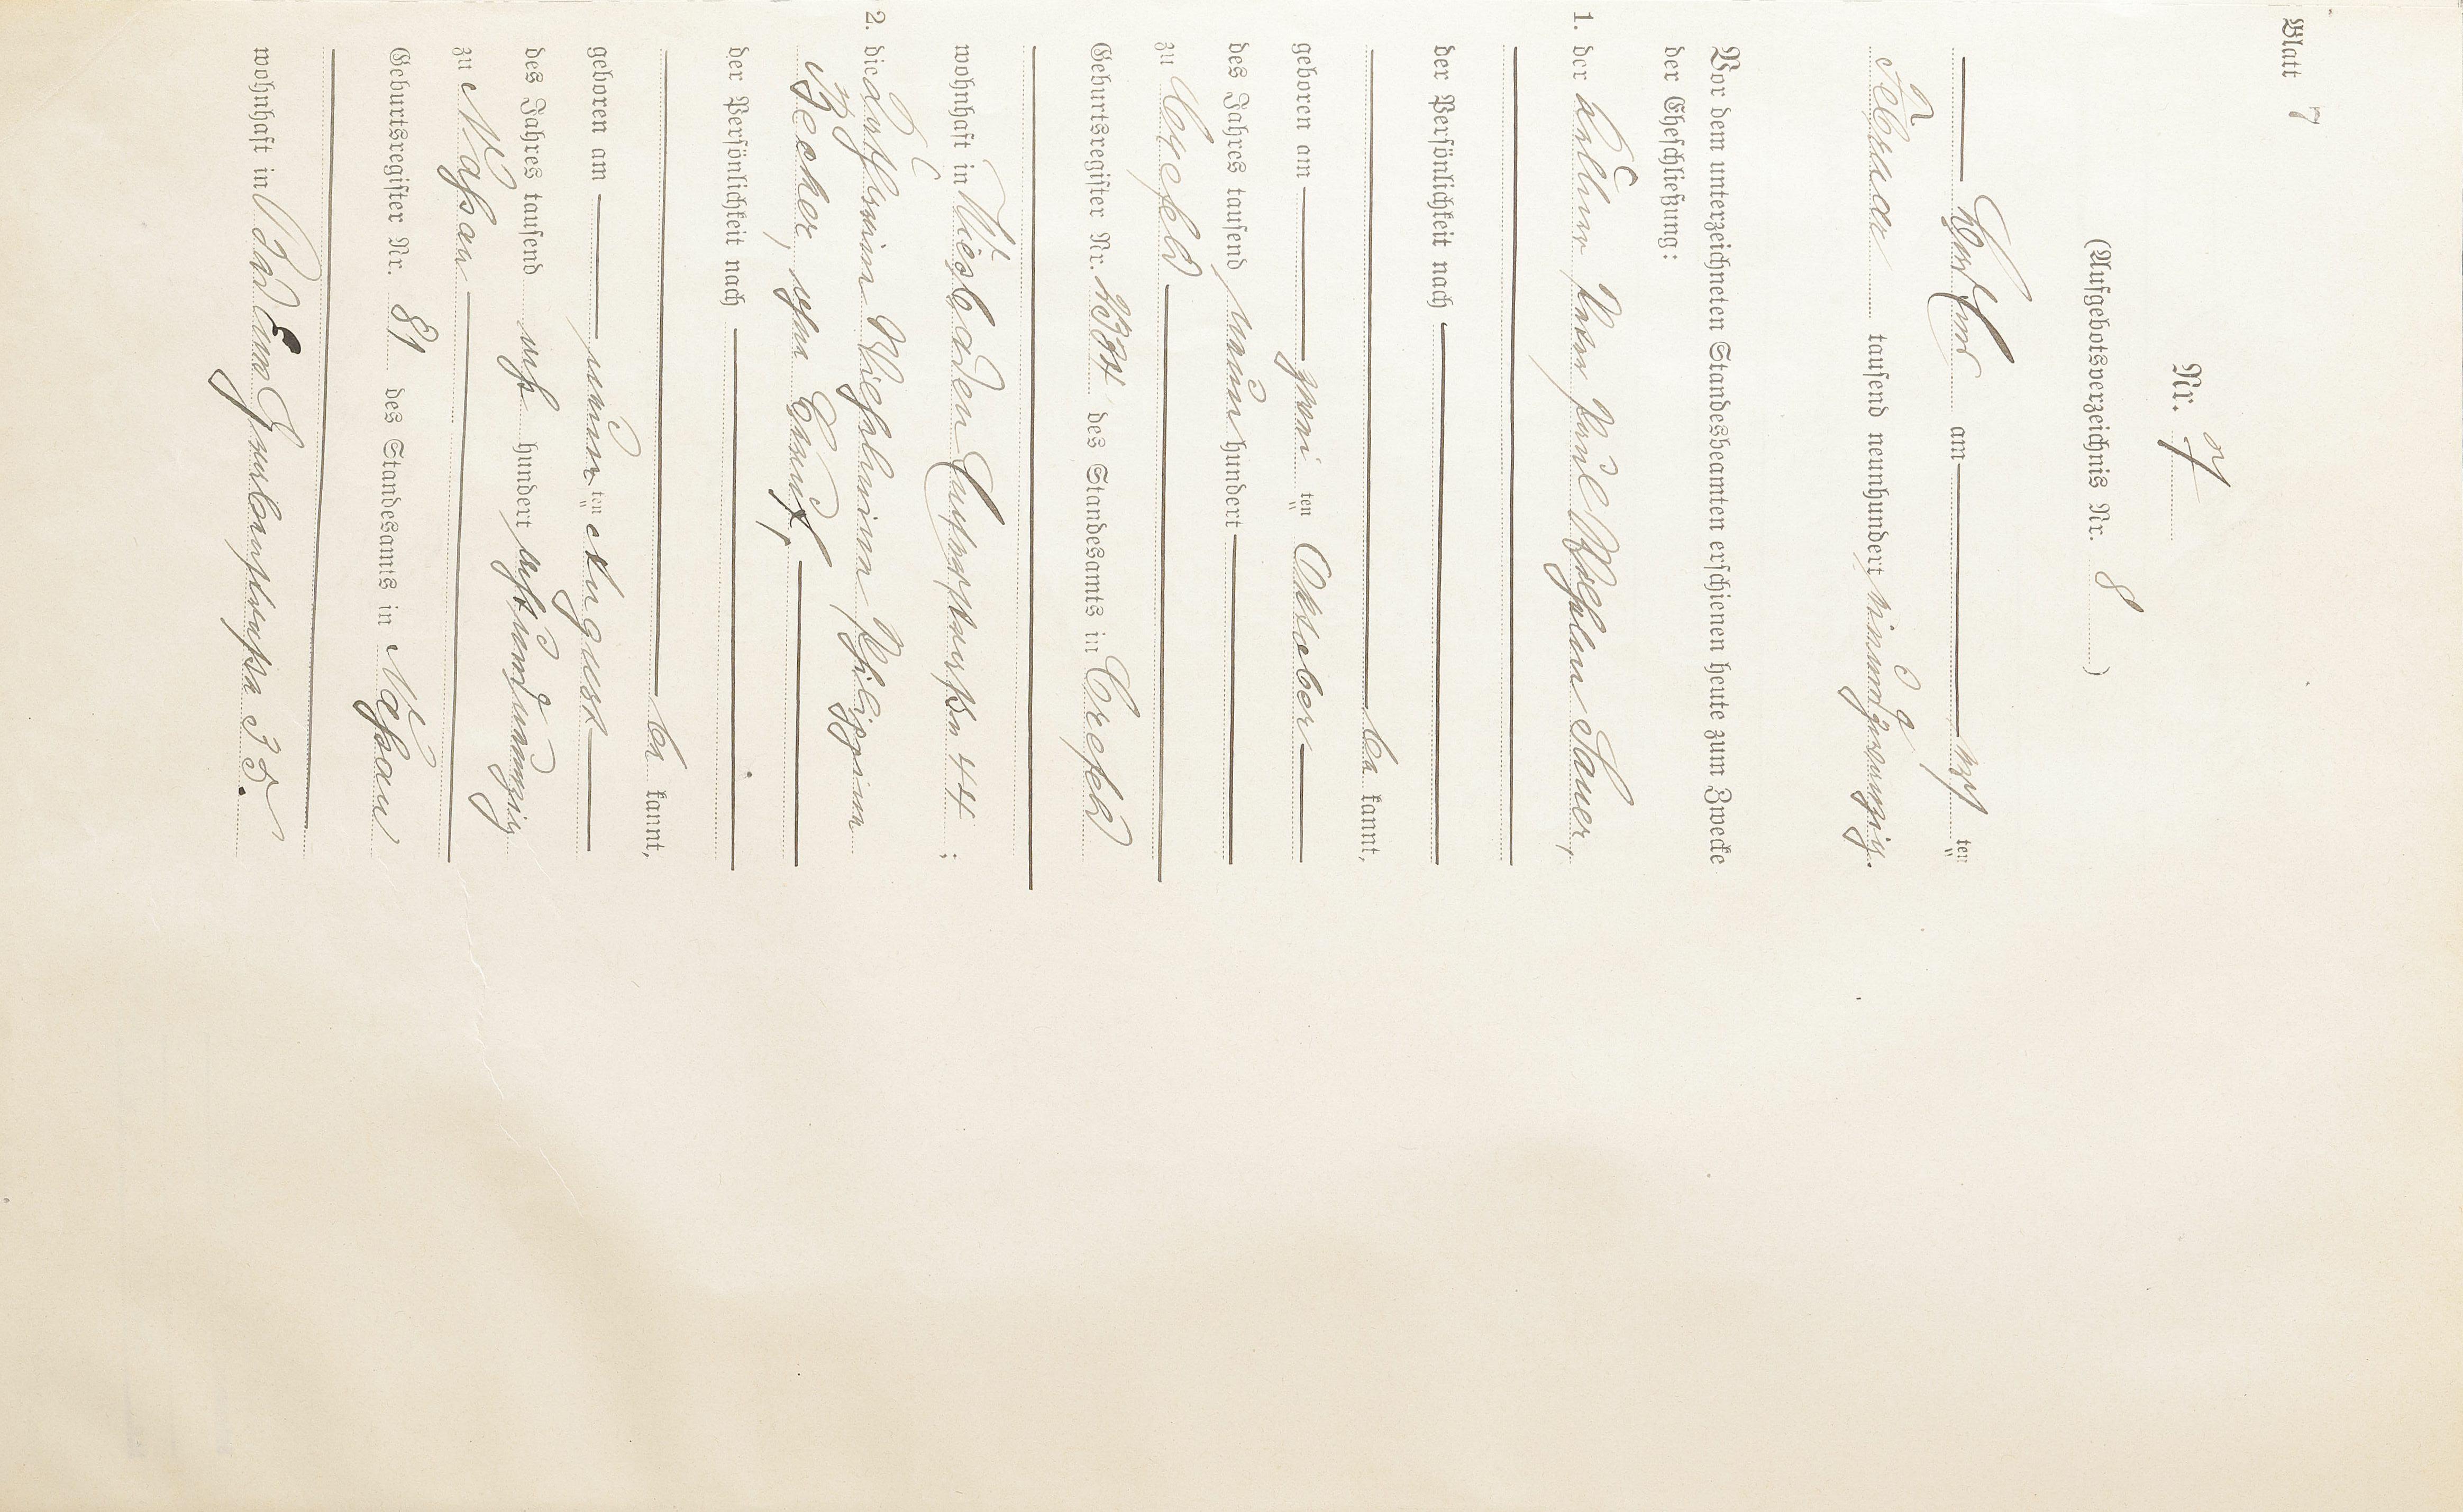 Blatt 7
Nr. 7
(Aufgebotsverzeichnis Nr. 8)
Bad Ems am acht ten
Februar tausend neunhundert neunundzwanzig.
Vor dem unterzeichneten Standesbeamten erschienen heute zum Zwecke
der Eheschließung:
1. der Peter Paul Wilhelm Sauer,
der Persönlichkeit nach
be kannt,
geboren am zwei ten Oktober
des Jahres tausend neun hundert
zu Crefeld
Geburtsregister Nr. des Standesamts in Crefeld
wohnhaft in Wiesbaden 44;
2. die Wilhelmine Philippine
Becker, ohne Beruf,
der Persönlichkeit nach
be kannt,
geboren am neun ten August
des Jahres tausend acht hundert achtundneunzig
zu Nassau
Geburtsregister Nr. 81 des Standesamts in Nassau
wohnhaft in Bad Ems 35.